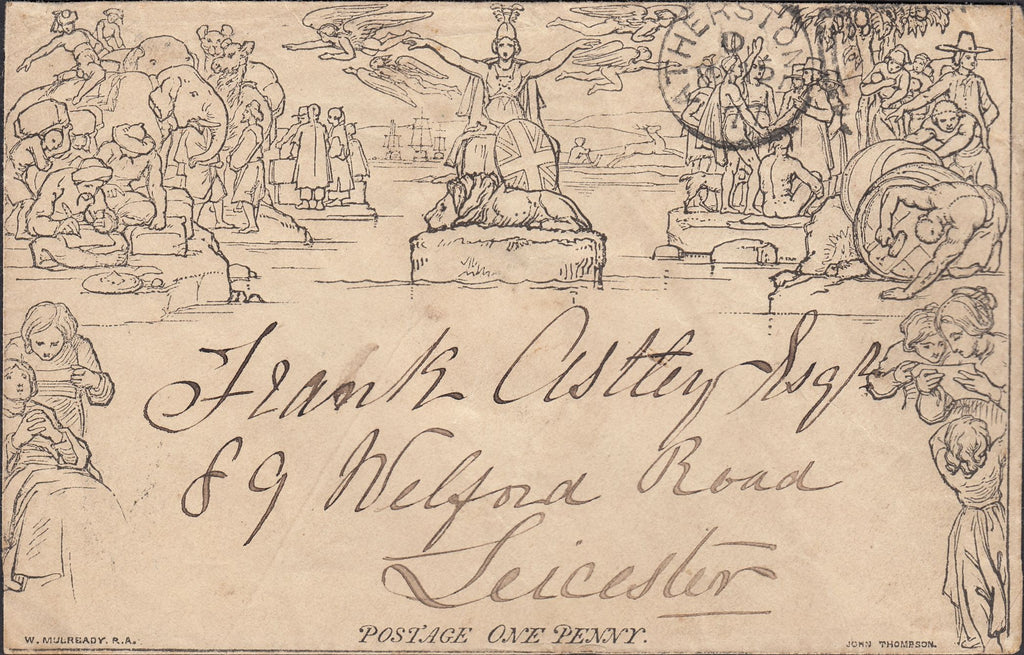 ATHERSTONE
Frank Astley Esqr
89 Welford Road
Leicester
W. MULREADY. R.A.
POSTAGE ONE PENNY.
JOHN THOMPSON.